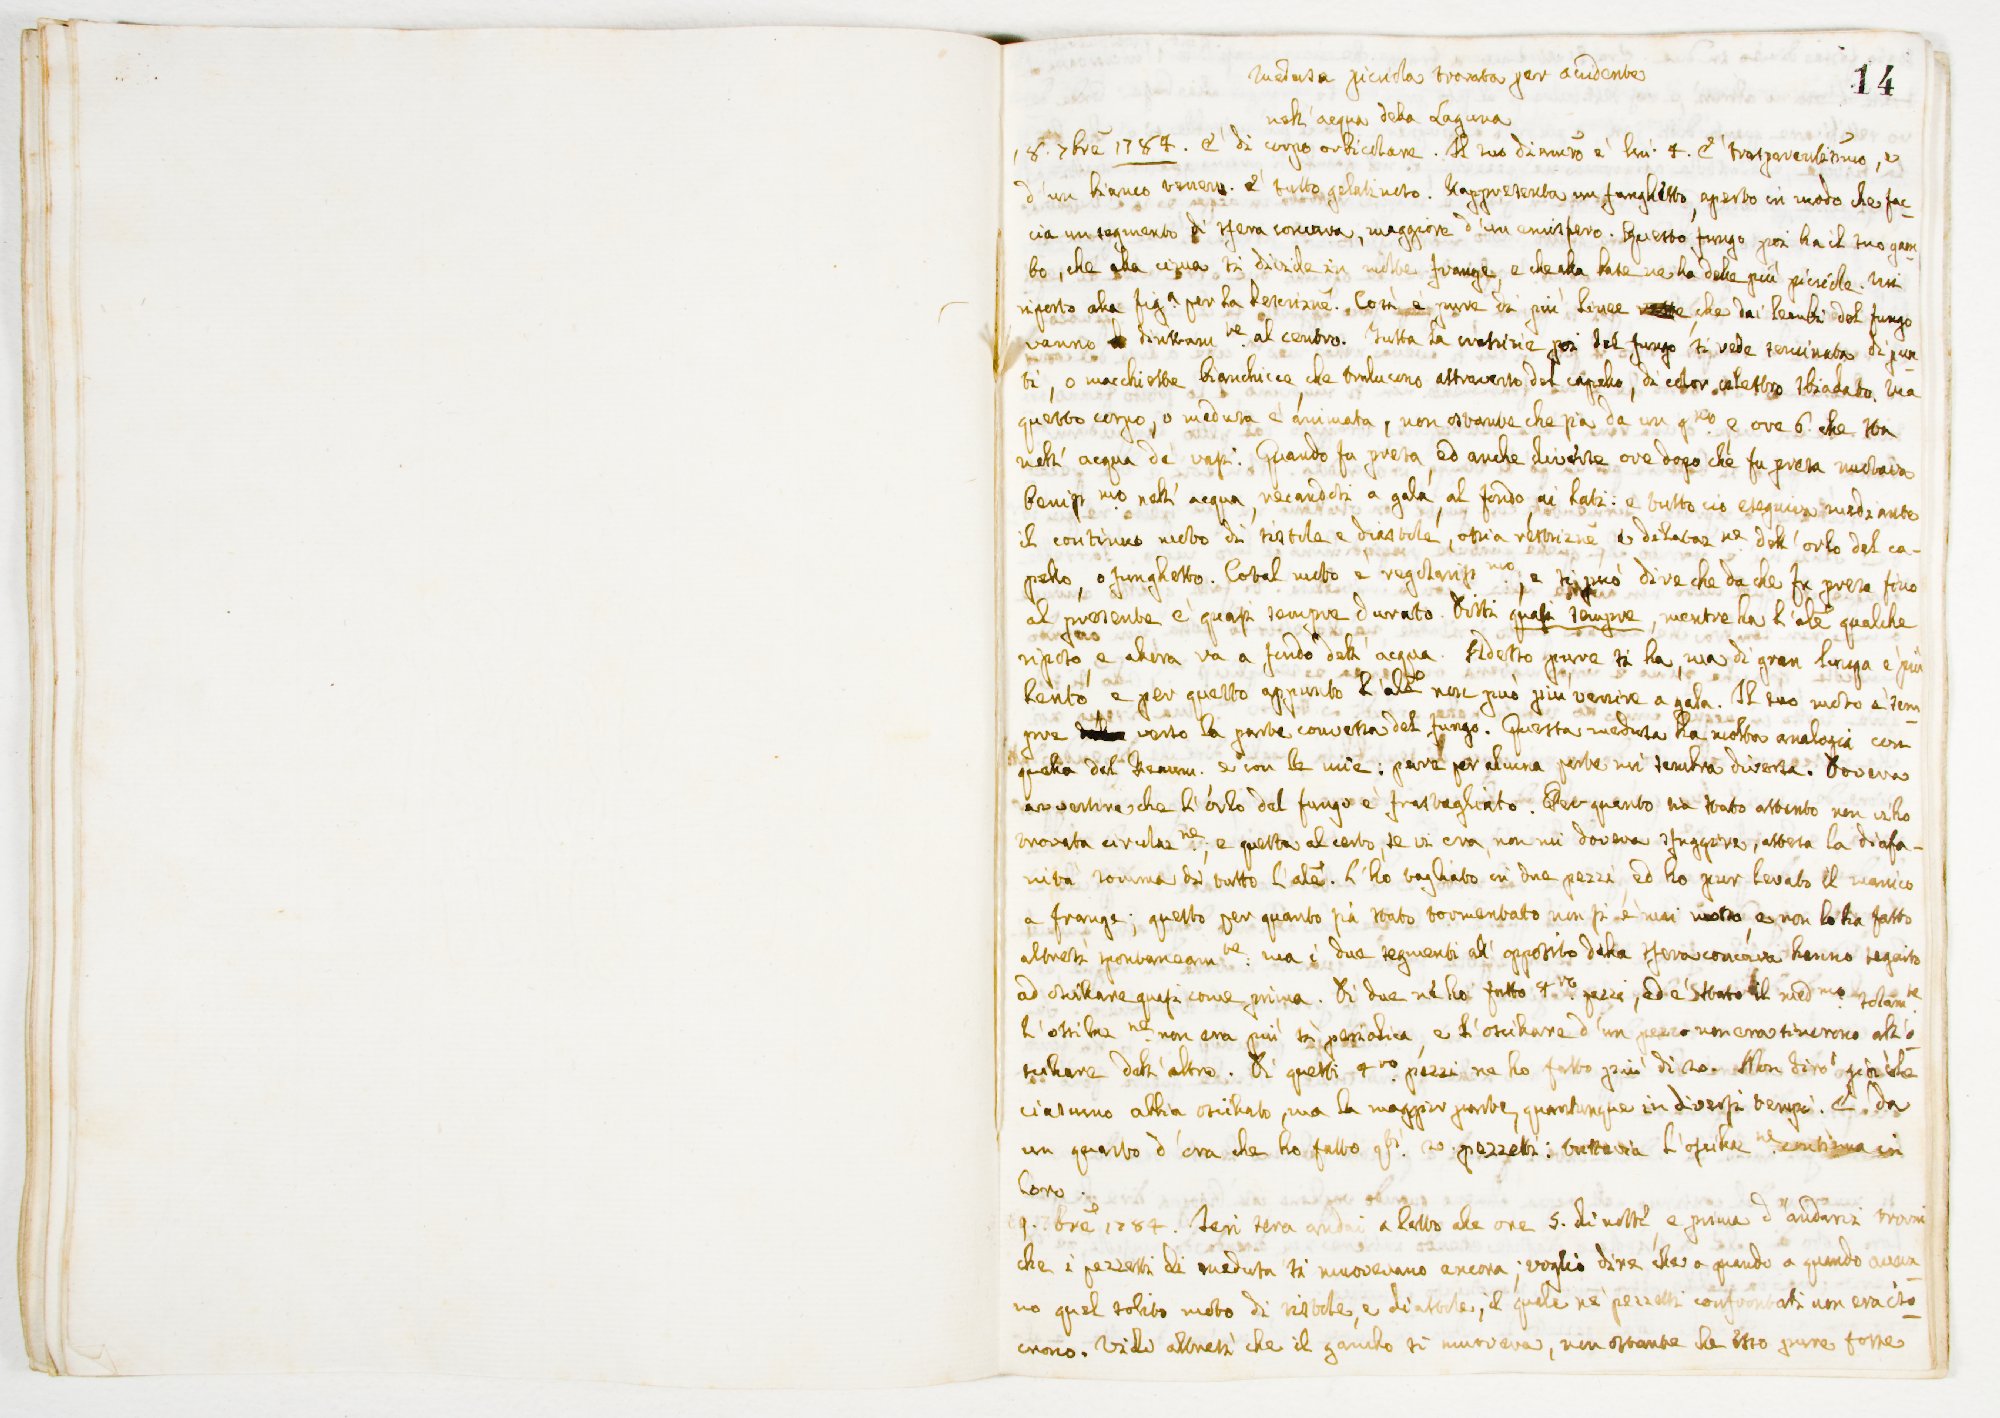 14
Medusa picciola trovata per accidente
nell'acqua della Laguna
18. 7bre 1784. E' di corpo orbicolare. Il suo diametro è lin. 4. E' trasparentissimo, e
d'un bianco venero. E' tutto gelatinoso. Rappresenta un funghetto, aperto in modo che fac-
cia un segmento di sfera concava, maggiore d'un emisfero. Questo fungo poi ha il suo gam-
bo, che alla cima si divide in molte frange, e che alla base ne ha delle più picciole. Mi
riporto alla fig.a per la descrizne. Così è pure di più linee che dai lembi del fungo
vanno dirittam.te al centro. Tutta la poi del fungo si vede seminata di pun-
ti, o macchiette bianchicce, che tralucono attraverso del capello, di color celestro sbiadato. Ma
questo corpo, o medusa è animata, non ostante che sia da un g.no e ore 6. che sta
nell'acqua de' vasi. Quando fu presa, ed anche diverse ore dopo che fu presa nuotava
beniss.mo nell'acqua, recandosi a gala, al fondo, ai lati: e tutto ciò eseguiva mediante
il continuo moto di sistole e diastole, ossia restrizne e dilataz.ne dell'orlo del ca-
pello, o funghetto. Cotal moto è regolariss.mo, e si può dire che da che fu presa fino
al presente è quasi sempre durato. Dissi quasi sempre, mentre ha l'ale qualche
riposo, e allora va a fondo dell'acqua. Adesso pure si ha, ma di gran lunga è più
lento, e per questo appunto l'ale non può più venire a gala. Il suo moto è sem-
pre verso la parte convessa del fungo. Questa medusa ha molta analogia con
quella del Reaum. e con le mie: pure per alcuna parte mi sembra diversa. Doveva
avvertire che l'orlo del fungo è frastagliato. Per quanto sia stato attento non ci ho
trovata circolaz.ne; e questa al certo, se vi era, non mi doveva sfuggire, attesa la diafa-
nità somma di tutto l'ale. L'ho tagliato in due pezzi, ed ho pur levato il manico
a frange; questo per quanto sia stato tormentato non si è mai mosso, e non lo ha fatto
altresì spontaneam.te: ma i due segmenti all'opposito della sfera concava hanno seguito
ad oscillare quasi come prima. Di due ne ho fatto 4.ro pezzi, ed è stato il med.mo solam.te
l'oscilaz.ne non era più sì periodica, e l'oscillare d'un pezzo non era sincrono all'o-
scillare dell'altro. Di questi 4.ro pezzi ne ho fatto più di 20. Non dirò già che
ciascuno abbia oscillato, ma la maggior parte, quantunque in diversi tempi. E' da
un quarto d'ora che ho fatto q.sti 20 pezzetti: tuttavia l'oscillaz.ne continua in
loro.
19. 7bre 1784. Ieri sera andai a letto alle ore 5. di notte, e prima d'andarci trovai
che i pezzetti di medusa si muovevano ancora; voglio dire che a quando a quando aveva-
no quel solito moto di sistole, e diastole, il quale ne' pezzetti confrontati non era iso-
crono. Vidi altresì che il gambo si muoveva, non ostante che esso pure fosse